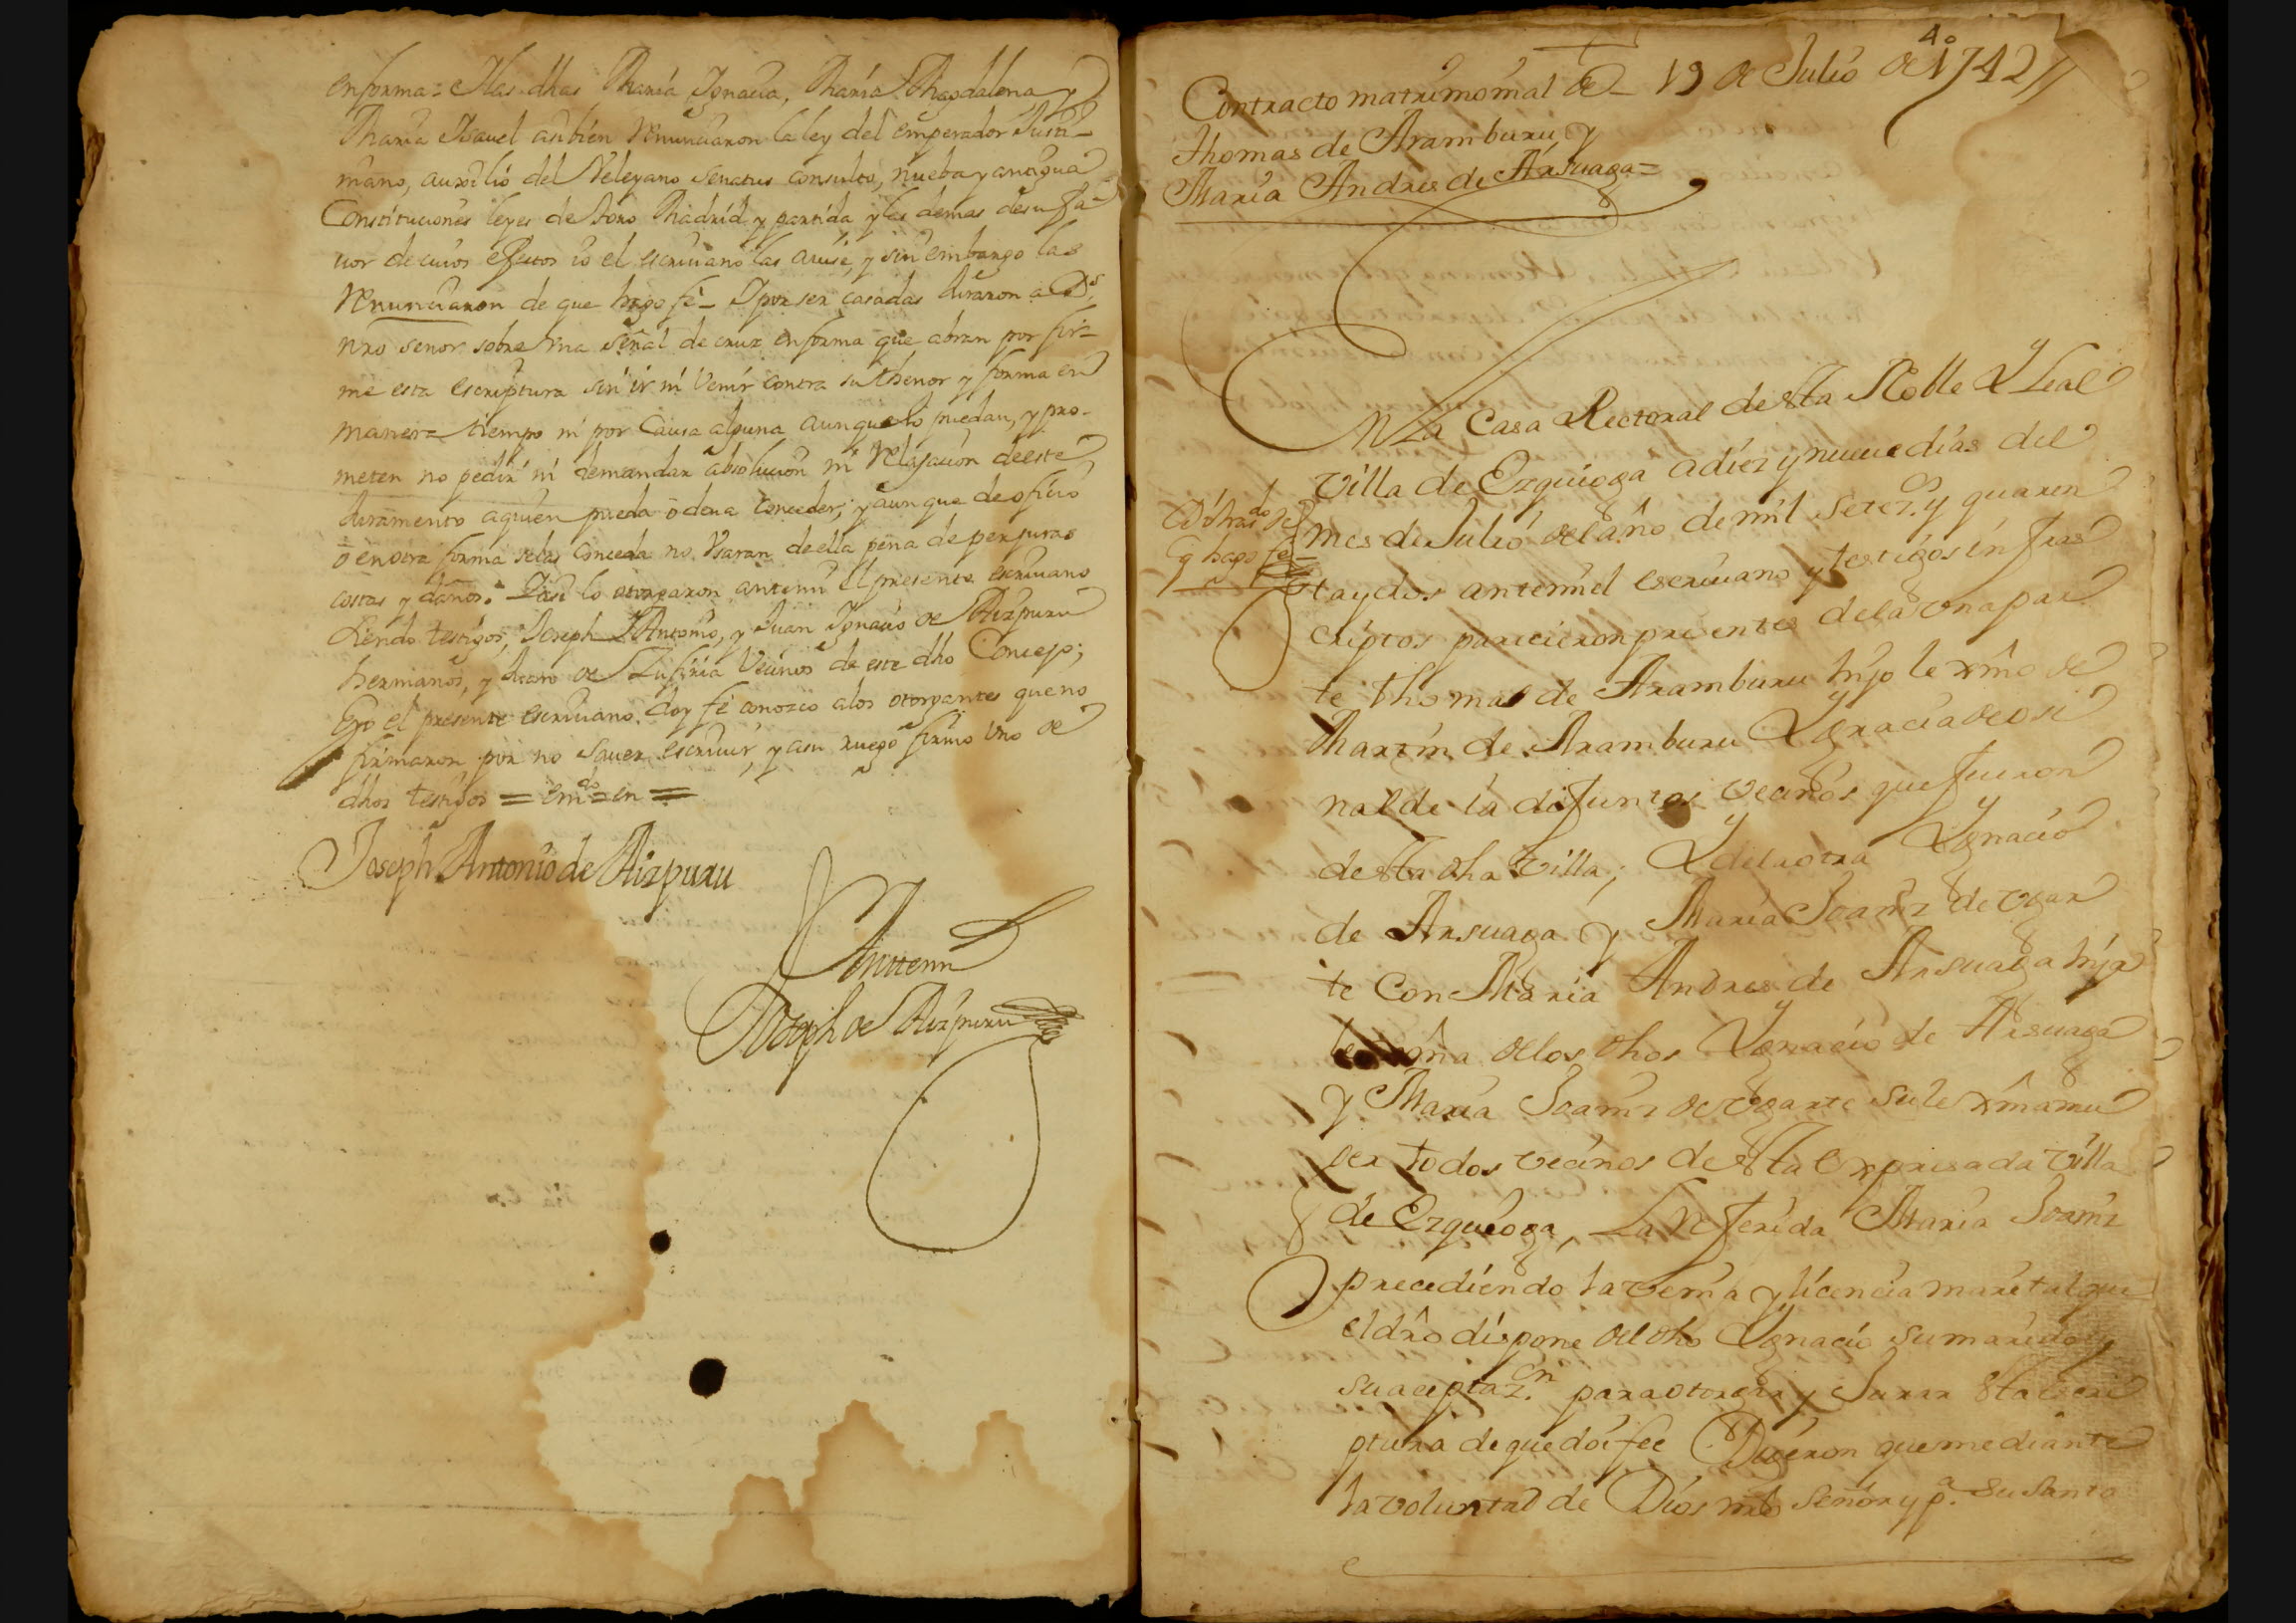 enforma = Mas dhas Maria Ignacia, Maria Magdalena y
Maria Isavel asibien renunciaron la ley del emperador Justi-
niano, auxilio del Veleyano senatus consulto, nueba y antigua
Constituciones leyes de toro Madrid y partida y las demas de su fa-
uor de cuios efectos io el escriuano las auise, y sin embargo las
renunciaron de que hago fe - I por ser casadas Juraron a Ds
nro señor sobre vna señal de cruz en forma que abran por fir-
me esta escriptura sin ir ni venir contra su thenor y forma en
manera tiempo ni por causa alguna aunque lo puedan, y pro-
meten no pedir ni demandar absolucion ni relajacion de este
Juramento aquien pueda o deua conceder; y aunque de oficio
o en otra forma selas conceda no vsaran de ella pena de perjuras
costas y daños. I asi lo otorgaron antemi el presente escriuano
siendo testigos, Joseph Antonio, y Juan Ignacio de Aizpuru
hermanos, y de Zufiria vecinos de este dho Concejo;
Eyo el presente escriuano doy fe conozco alos otorgantes que no
firmaron, por no sauer escriuir, y asu ruego firmo vno de
dhos testigos = emdo = en =
Joseph Antonio de Aizpuru
Antemi
Joseph de Aizpuru
40
Contracto matrimonial de 19 de Julio de 1742
thomas de Aramburu, y
Maria Andres de Arsuaga =
En La Casa Rectoral desta Noble y Leal
villa de Ezquioga adiez y nueue dias del
mes de Julio del año de mil setezos y quaren
q hago fe
tay dos antemi el escriuano y testigos infras
criptos parecieron presentes dela vna par
te thomas de Aramburu hijo lexmo de
Martin de Aramburu y Gracia de osi
nalde ia difuntos vecinos que fueron
desta dha villa; y dela otra Ygnacio
de Arsuaga y Maria Joaniz de vgar
te con Maria Andres de Arsuaga hija
lexma delos dhos Ygnacio de Arsuaga
y Maria Joaniz de vgarte sulexmamu
ger todos vecinos desta expresada villa
de Ezquioga, La referida Maria Joaniz
precediendo la venia y licencia marital que
el dro dispone del dho Ygnacio sumarido y
suaceptazon para otorgar y Jurar esta escri
ptura de que doi fee Digeron que mediante
la voluntad de Dios nro señor y pa su santo